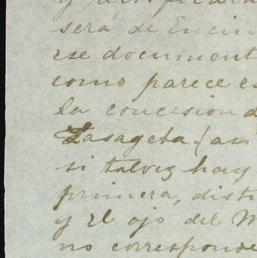 será de Encin
rse document
como parece es
la concesion d
Lasageta (as
si talvez hay
primera, disti
y el ojo del M
no corresponde